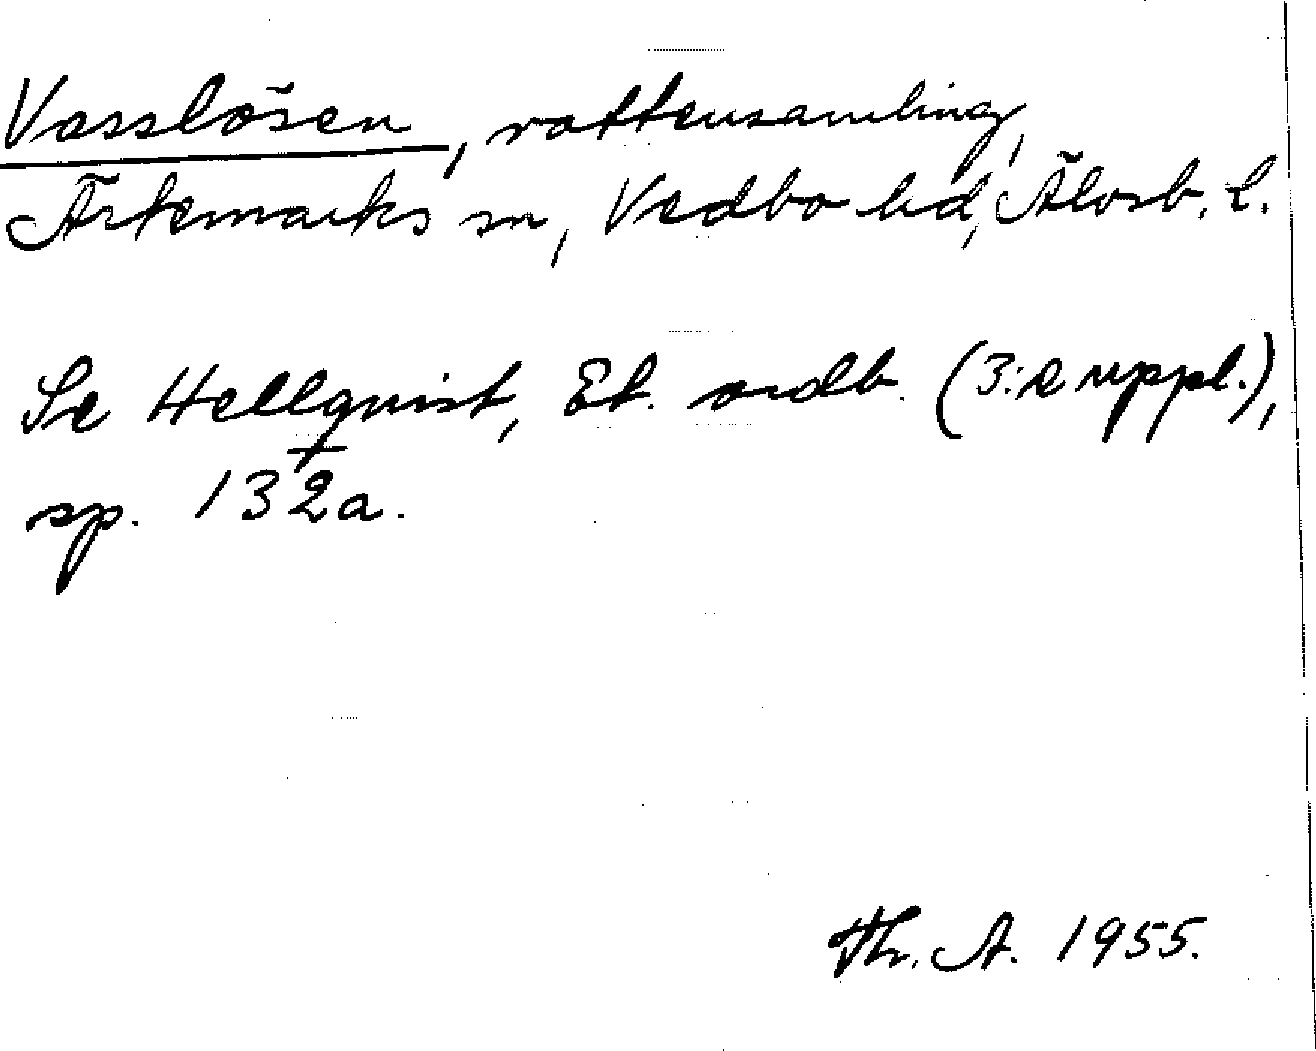 Vasslösen, vattensamling,
Ärtemarks sn, Vedbo hd, Älvsb. l.
Se Hellquist, Et. ordb. (3:e uppl.),
sp. 1322a.
Th. A. 1955.